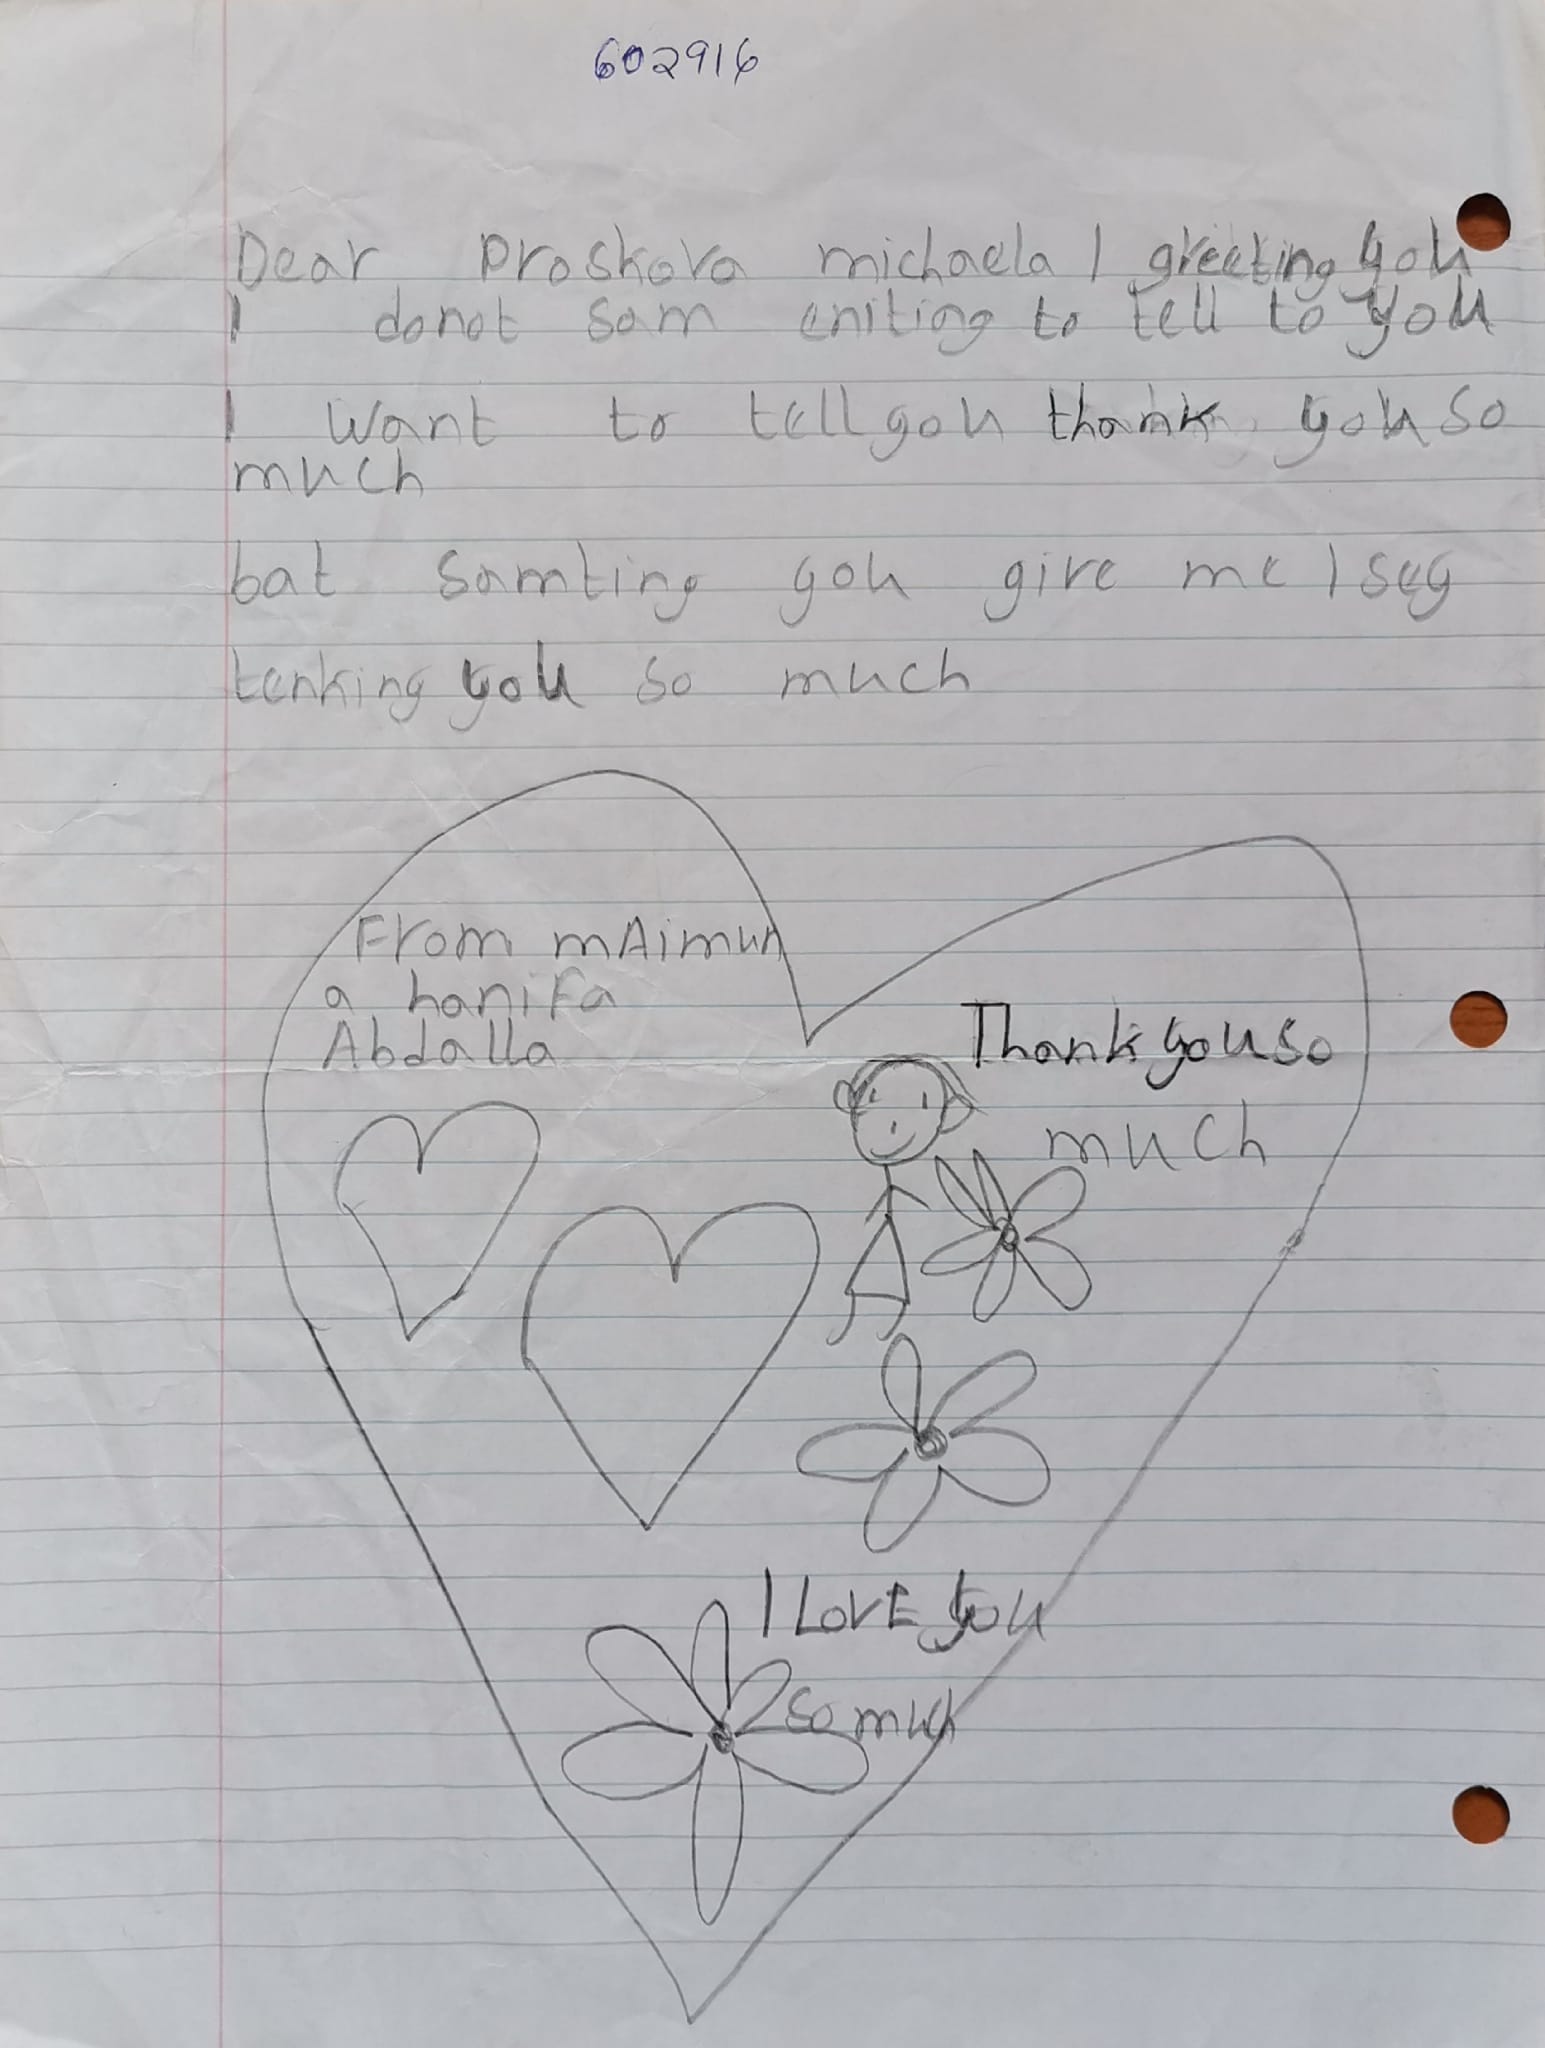 602916
Dear Proskova michaela I greeting you
I donot som eniting to tell to you
I want to tell you thank you so
much
bat somting you give me I sey
tenking you so much
From mAimun
a hanifa
Abdalla
Thank you so
much
I LovE you
so much